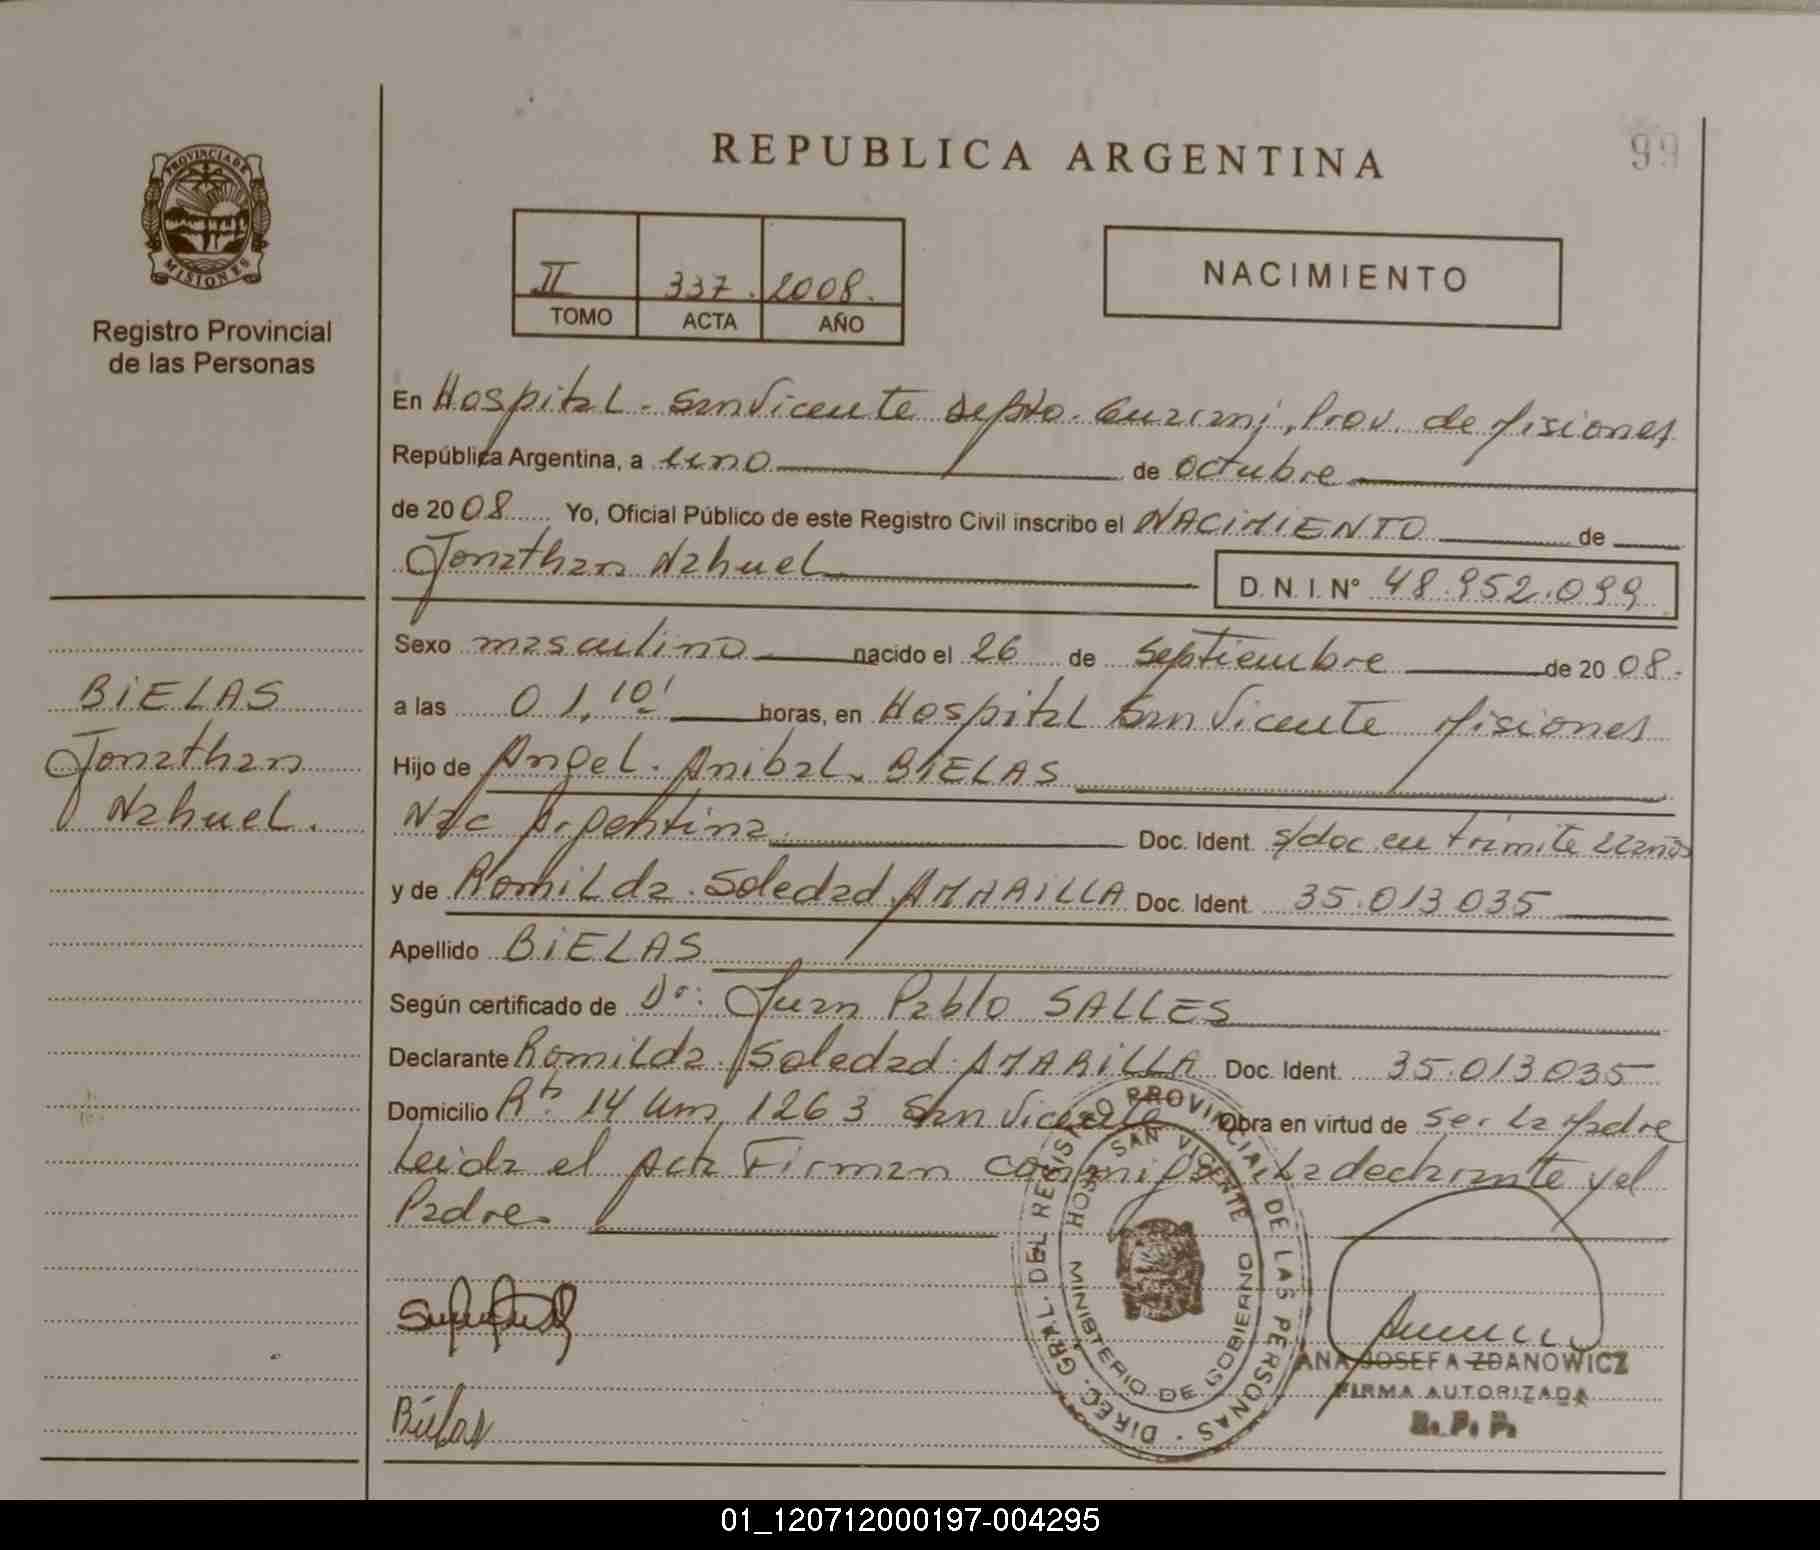 REPUBLICA ARGENTINA
99
PROVINCIA DE
MISIONES
Registro Provincial
de las Personas
II 337. 2008.
TOMO ACTA AÑO
NACIMIENTO
En Hospital. San Vicente Depto. Guarani, Prov. de Misiones
República Argentina, a uno de octubre
de 2008 Yo, Oficial Público de este Registro Civil inscribo el NACIMIENTO de
Jonathan Nahuel D. N. I. N° 48.952.099
Sexo masculino nacido el 26 de septiembre de 2008.
a las 01,10' horas, en Hospital San Vicente Misiones
Hijo de Angel. Anibal. BIELAS
Nac Argentina Doc. Ident. s/doc en tramite 22años
y de Romilda. Soledad. AMARILLA Doc. Ident. 35.013035
Apellido BIELAS
Según certificado de Dr: Juan Pablo SALLES
Declarante Romilda. Soledad. AMARILLA Doc. Ident. 35.013035
Domicilio Rta. 14 Km 1263 San Vicente Obra en virtud de ser La Madre
Leida el Acta Firman conmigo La declarante y el
Padre
BIELAS
Jonathan
Nahuel.
DIREC. GRAL. DEL REGISTRO PROVINCIAL DE LAS PERSONAS
HOSP. SAN VICENTE
MINISTERIO DE GOBIERNO
Bielas
ANA JOSEFA ZDANOWICZ
FIRMA AUTORIZADA
R. P. P.
01_120712000197-004295